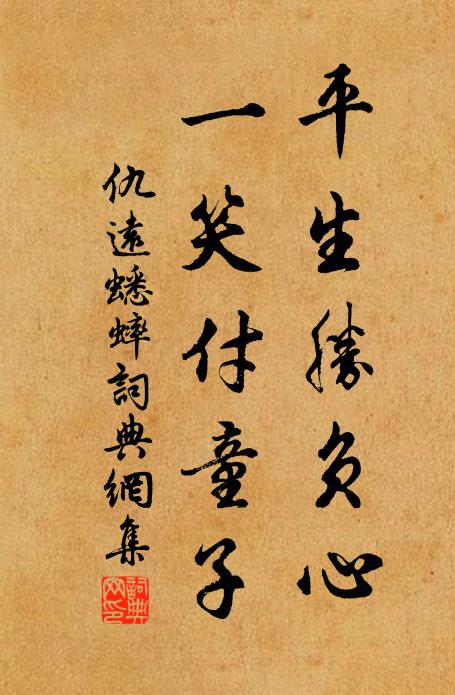 平生勝負心
一笑付童子
仇遠蟋蟀詞典網集
詞典網印